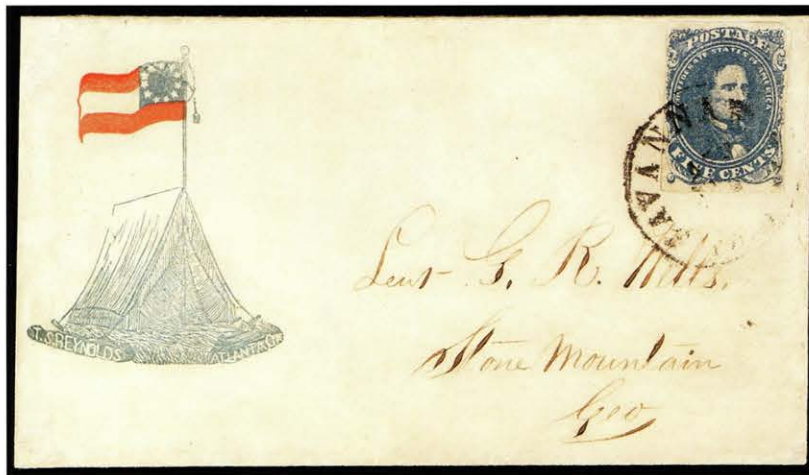 POSTAGE
CONFEDERATE STATES OF AMERICA
FIVE CENTS
SAVANNAH
T. S. REYNOLDS ATLANTA GA
Leut G. R. Wells.
Stone Mountain
Geo